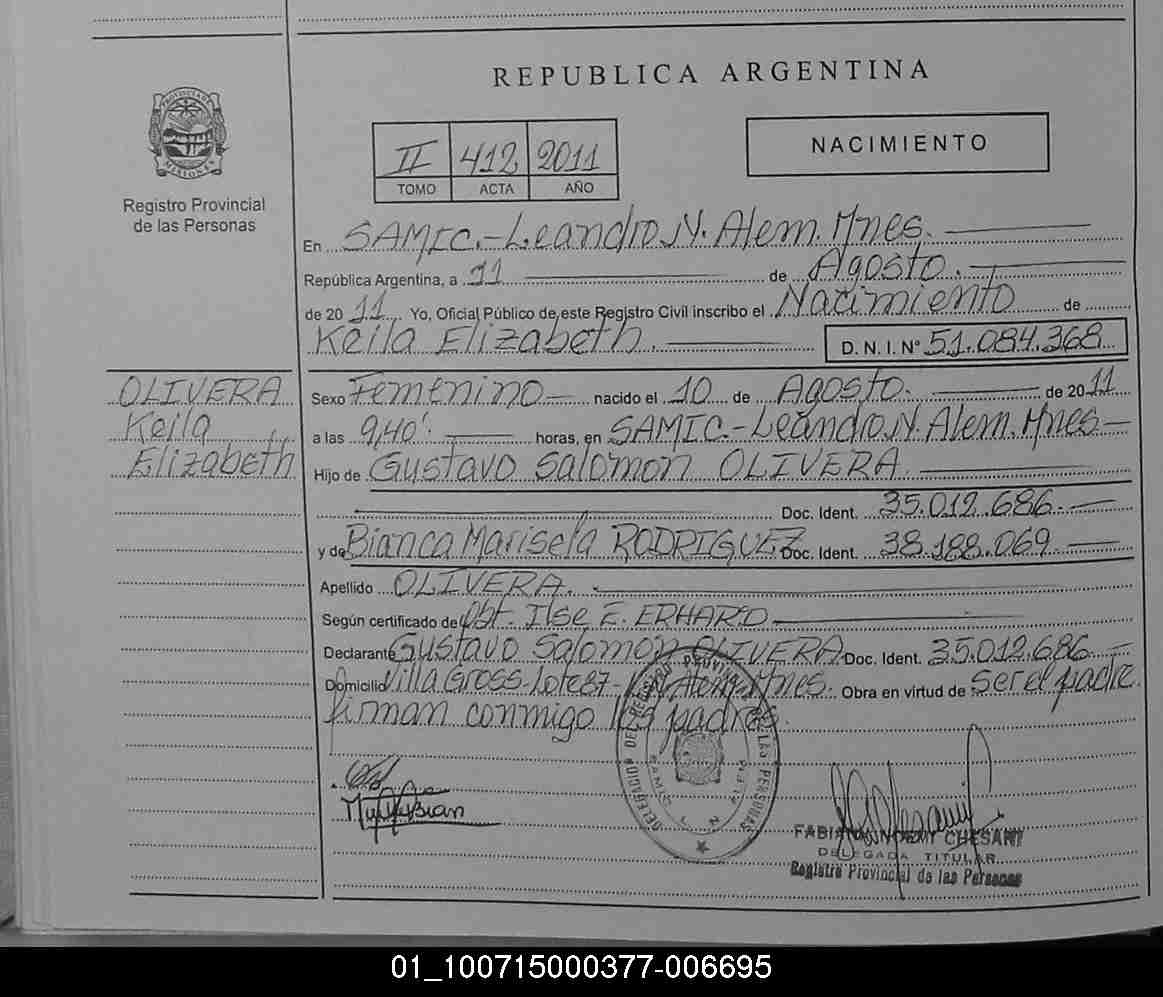 REPUBLICA ARGENTINA
PROVINCIA DE
MISIONES
Registro Provincial
de las Personas
II 412 2011
TOMO ACTA AÑO
NACIMIENTO
En SAMIC.-Leandro.N. Alem.Mnes.
República Argentina, a 11 de Agosto.
de 2011 Yo, Oficial Público de este Registro Civil inscribo el Nacimiento de
Keila Elizabeth. D.N.I. Nº 51.084.368
OLIVERA
Keila
Elizabeth
Sexo Femenino nacido el 10 de Agosto. de 2011
a las 9,40' horas, en SAMIC.-Leandro.N. Alem.Mnes
Hijo de Gustavo Salomon OLIVERA.
Doc. Ident. 35.012.686.
y de Bianca Marisela RODRIGUEZ Doc. Ident. 38.188.069
Apellido OLIVERA.
Según certificado de Obt. Ilse E. ERHARD
Declarante Gustavo Salomon OLIVERA Doc. Ident. 35.012.686
Domicilio Villa Gross-Lote 87- Alem-Mnes. Obra en virtud de Ser el padre
firman conmigo los padres.
DELEGACION DEL REGISTRO PROVINCIAL DE LAS PERSONAS
SAMIC L. N. ALEM
Bian
FABIANA NOEMY CHESANI
DELEGADA TITULAR
Registro Provincial de las Personas
01_100715000377-006695